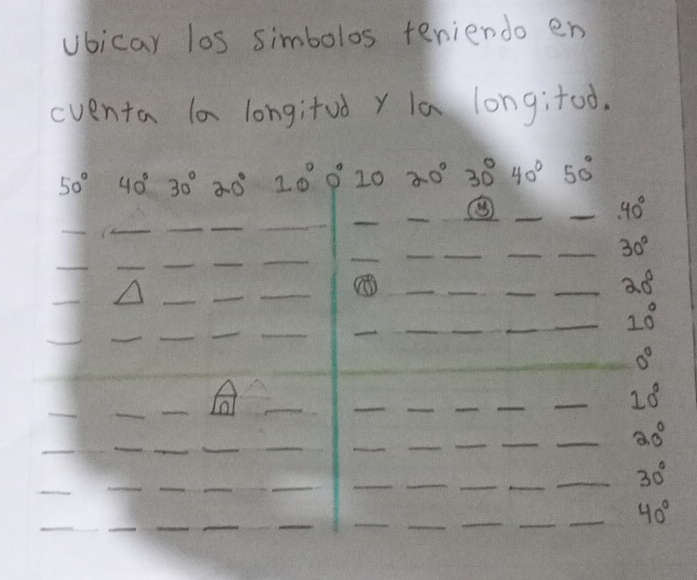 ubicar los simbolos teniendo en
cuenta la longitud y la longitud.
50° 40° 30° 20° 10° 0° 10 20° 30° 40° 50°
40°
30°
20°
10°
0°
10°
20°
30°
40°